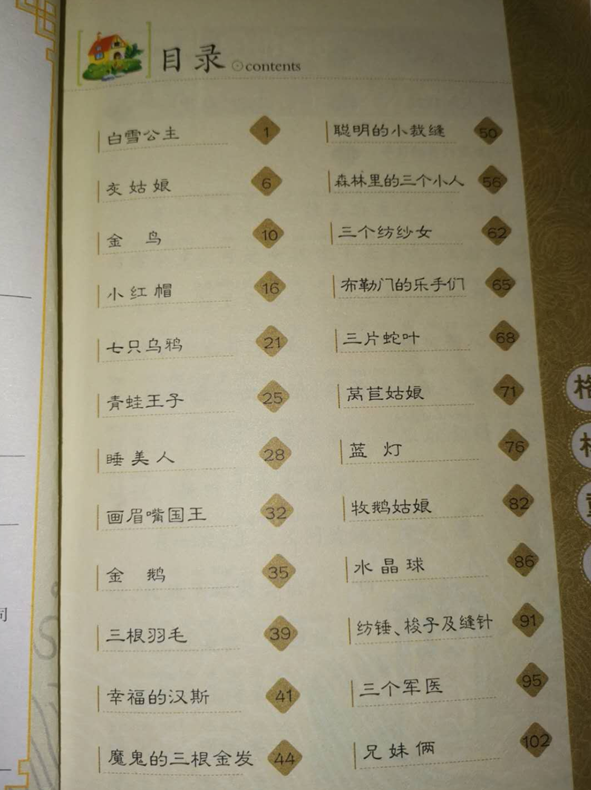 目录 contents
白雪公主 1
灰姑娘 6
金鸟 10
小红帽 16
七只乌鸦 21
青蛙王子 25
睡美人 28
画眉嘴国王 32
金鹅 35
三根羽毛 39
幸福的汉斯 41
魔鬼的三根金发 44
聪明的小裁缝 50
森林里的三个小人 56
三个纺纱女 62
布勒门的乐手们 65
三片蛇叶 68
莴苣姑娘 71
蓝灯 76
牧鹅姑娘 82
水晶球 86
纺锤、梭子及缝针 91
三个军医 95
兄妹俩 102